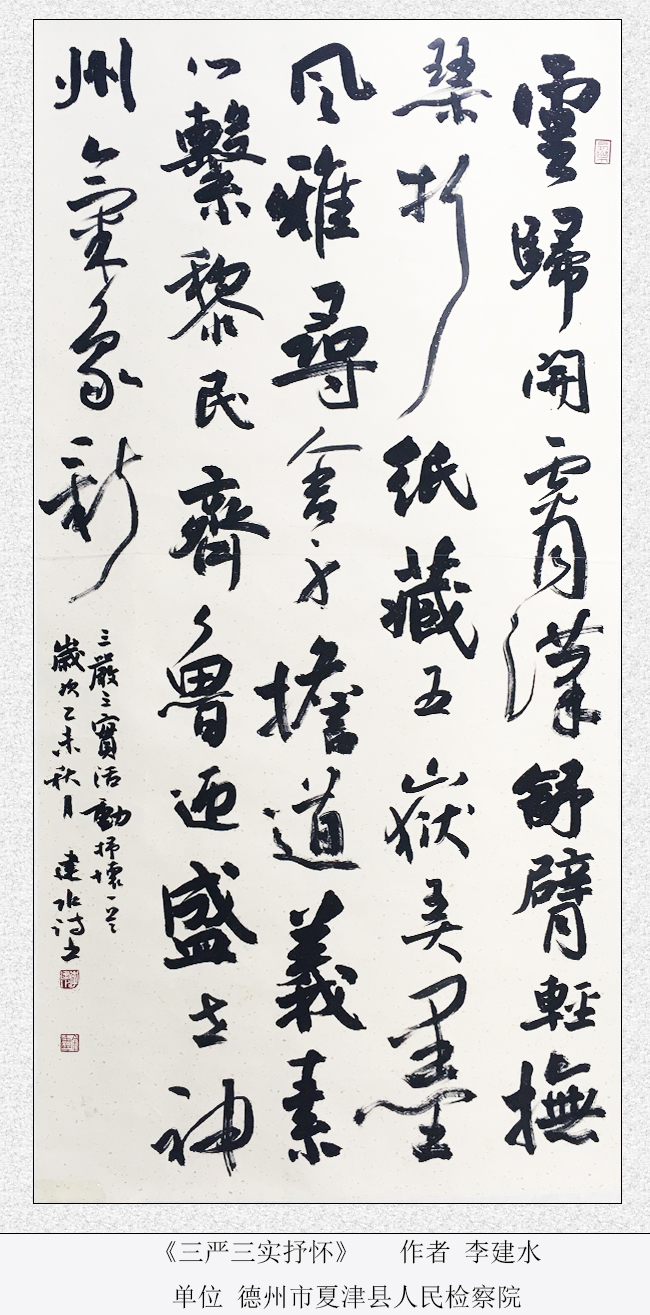 雲歸開霄漢舒臂輕撫
琴折紙藏五嶽弄墨
風雅尋舍予擔道義素
心繫黎民齊魯迎盛世神
州氣象新
三嚴三實活動抒懷一首
歲次乙未秋月 建水詩書
《三严三实抒怀》 作者 李建水
单位 德州市夏津县人民检察院